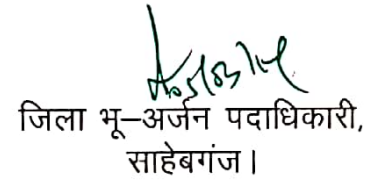 जिला भू–अर्जन पदाधिकारी,
साहेबगंज।